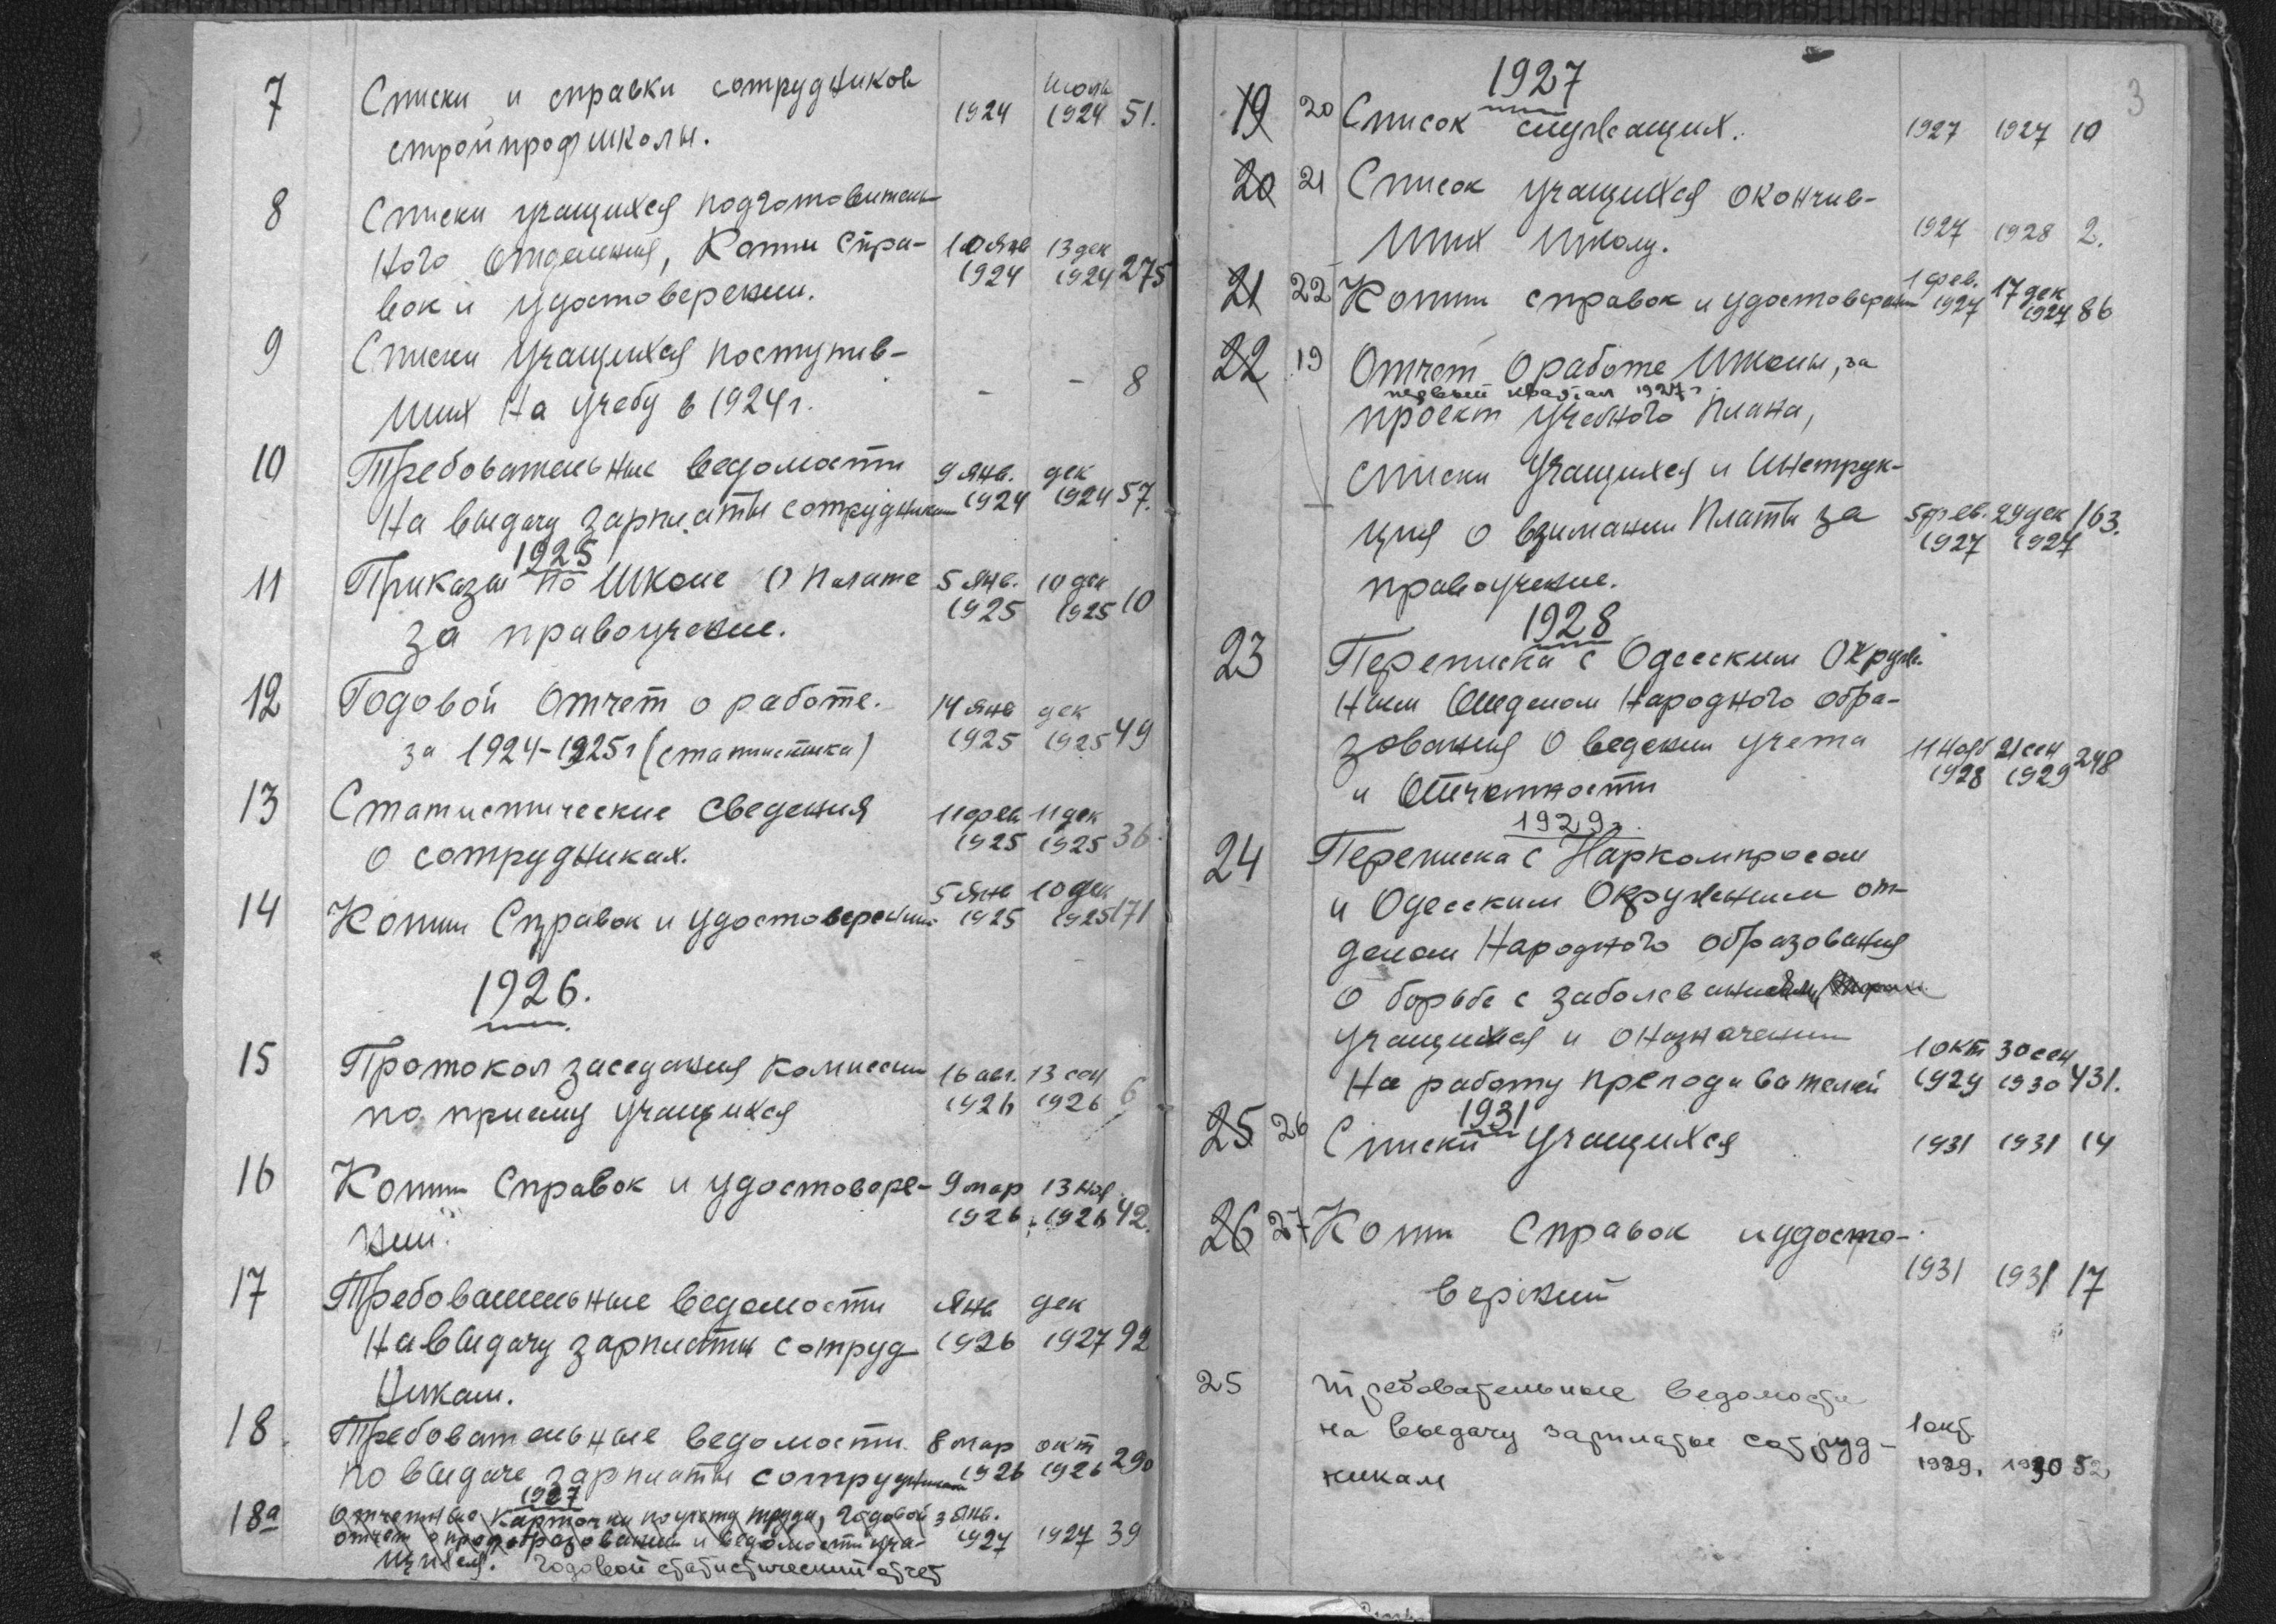 7 Списки и справки сотрудников 1924 июль 1924 51.
стройпрофшколы.
8 Списки учащихся подготовитель-
ного отделения, Копии спра- 10 янв 1924 13 дек 1924 275
вок и удостоверении.
9 Списки учащихся поступив-
ших на учебу в 1924 г. - - 8
10 Требовательные ведомости 9 янв. 1924 дек 1924 57.
на выдачу зарплаты сотрудникам
1925
11 Приказы по школе о плате 5 янв. 1925 10 дек 1925 10
за правоучение.
12 Годовой отчет о работе. 14 янв 1925 дек 1925 49
за 1924-1925 г (статистика)
13 Статистические сведения 11 фев 1925 11 дек 1925 36
о сотрудниках.
14 Копии справок и удостоверении 5 янв 1925 10 дек 1925 171
1926.
15 Протокол заседания комиссии 16 авг. 1926 13 сен 1926 6
по приему учащихся
16 Копии справок и удостовере- 9 мар 1926 13 ноя 1926 42.
ний.
17 Требовательные ведомости янв 1926 дек 1927 92
на выдачу зарплаты сотруд-
никам.
18. Требовательные ведомости 8 мар 1926 окт 1926 290
по выдаче зарплаты сотрудникам
1927
18а Отчетные карточки по учету труда, годовой 3 янв. 1927 1927 39
отчет о профобразовании и ведомости уча-
щихся. годовой статистический отчет
3
1927
19 20 Список служащих. 1927 1927 10
20 21 Список учащихся окончив-
ших школу. 1927 1928 2.
21 22 Копии справок и удостоверении 1 фев. 1927 17 дек 1927 86
22 19 Отчет о работе школы, за
первый квартал 1927 г
проект учебного плана,
списки учащихся и инструк-
ция о взимании платы за 5 фев. 1927 29 дек 1927 163.
правоучение.
1928
23 Переписка с Одесским окруж-
ным отделом народного обра-
зования о ведении учета 11 нояб 1928 21 сен 1929 298
и отчетности
1929 г.
24 Переписка с Наркомпросом
и Одесским окружным от-
делом народного образования
о борьбе с заболеваниями
учащихся и о назначении
на работу преподавателей 1 окт 1929 30 сен 1930 431.
1931
25 26 Списки учащихся 1931 1931 14
26 27 Копи справок и удосто-
верений 1931 1931 17
25 требовательные ведомости
на выдачу зарплаты сотруд- 1 окт.
никам 1929. 1930 52